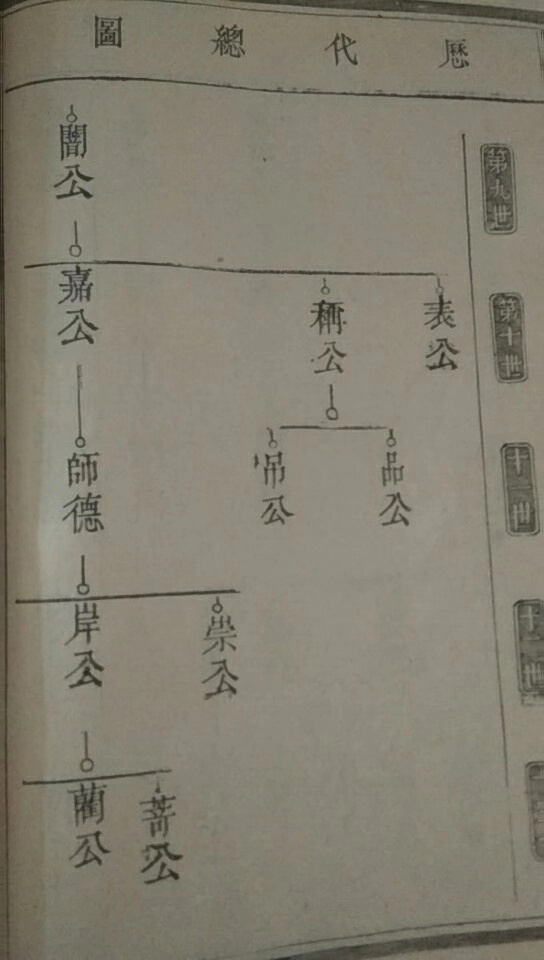 厯代總圖
第九世
闇公
第十世
表公
稱公
嘉公
十一世
品公
吊公
師德
十二世
崇公
岸公
公
公